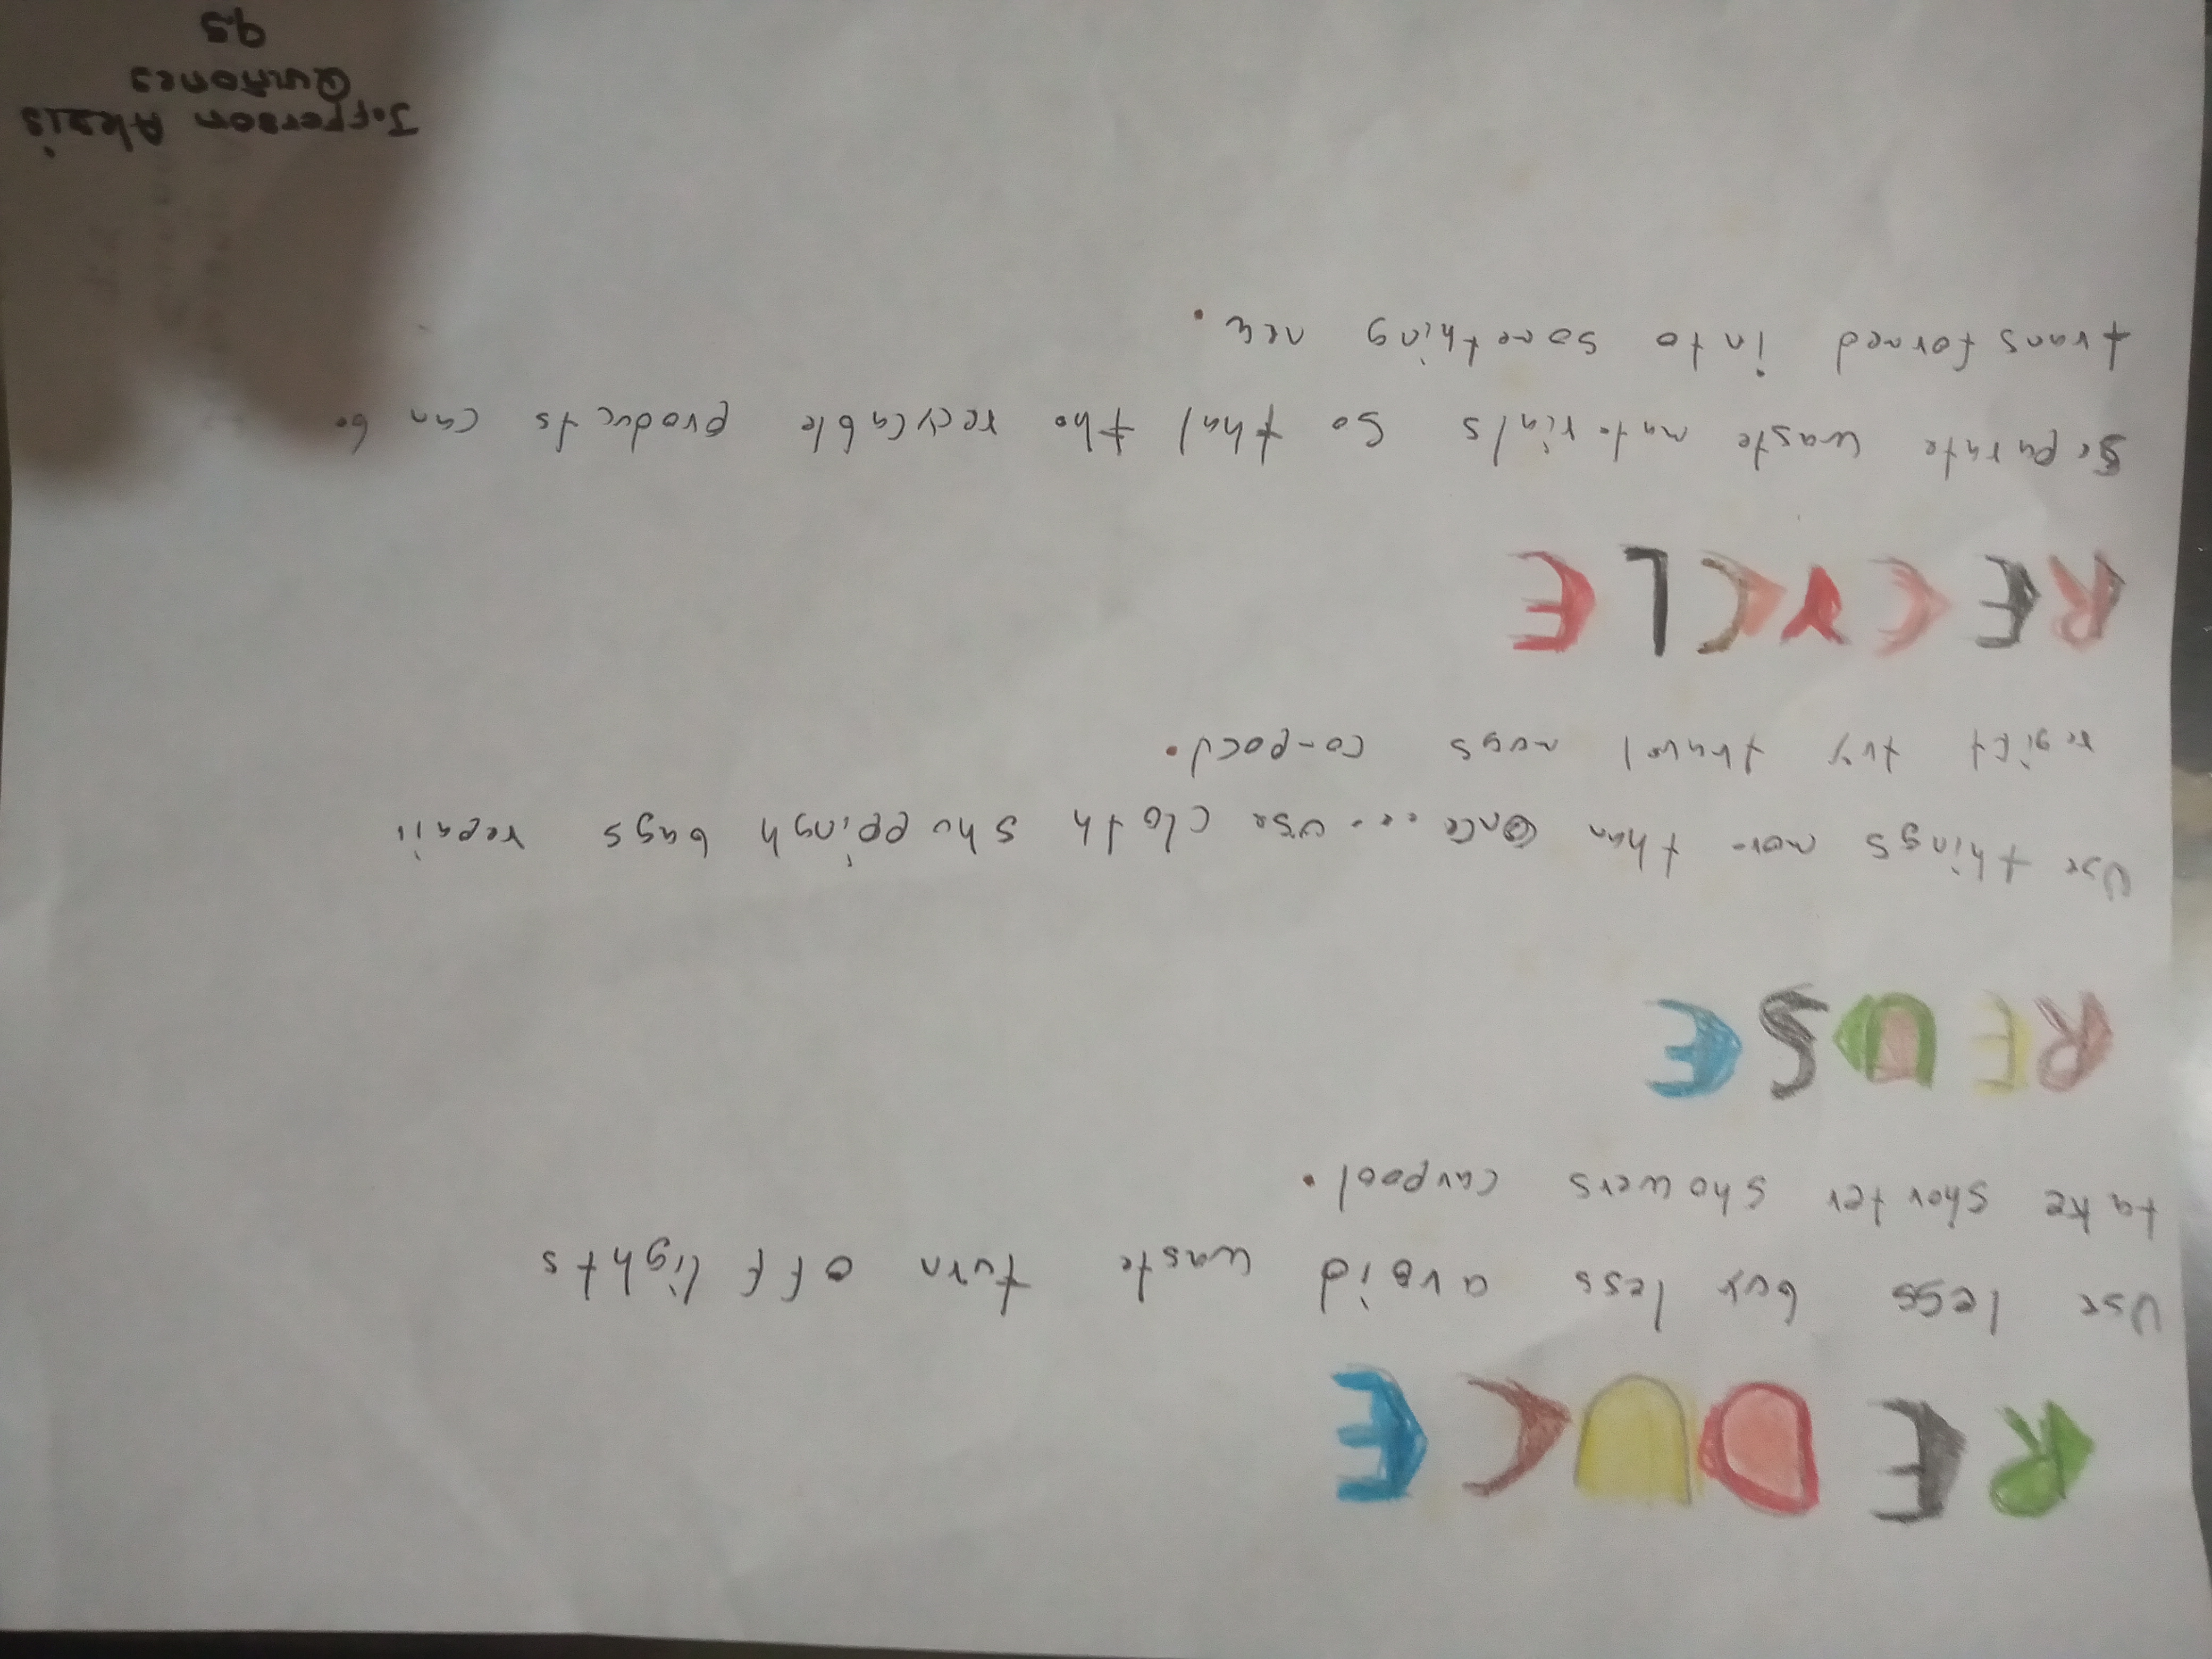 REDUCE
Use less buy less avoid waste turn off lights
take shorter showers carpool.
REUSE
Use things more than once... use cloth shoppingh bags repair
regift try travel mugs
RECYCLE
Separate waste materials so that the recycable products can be
transformed into something new.
Jefferson Alexis
Quiñones
9.5